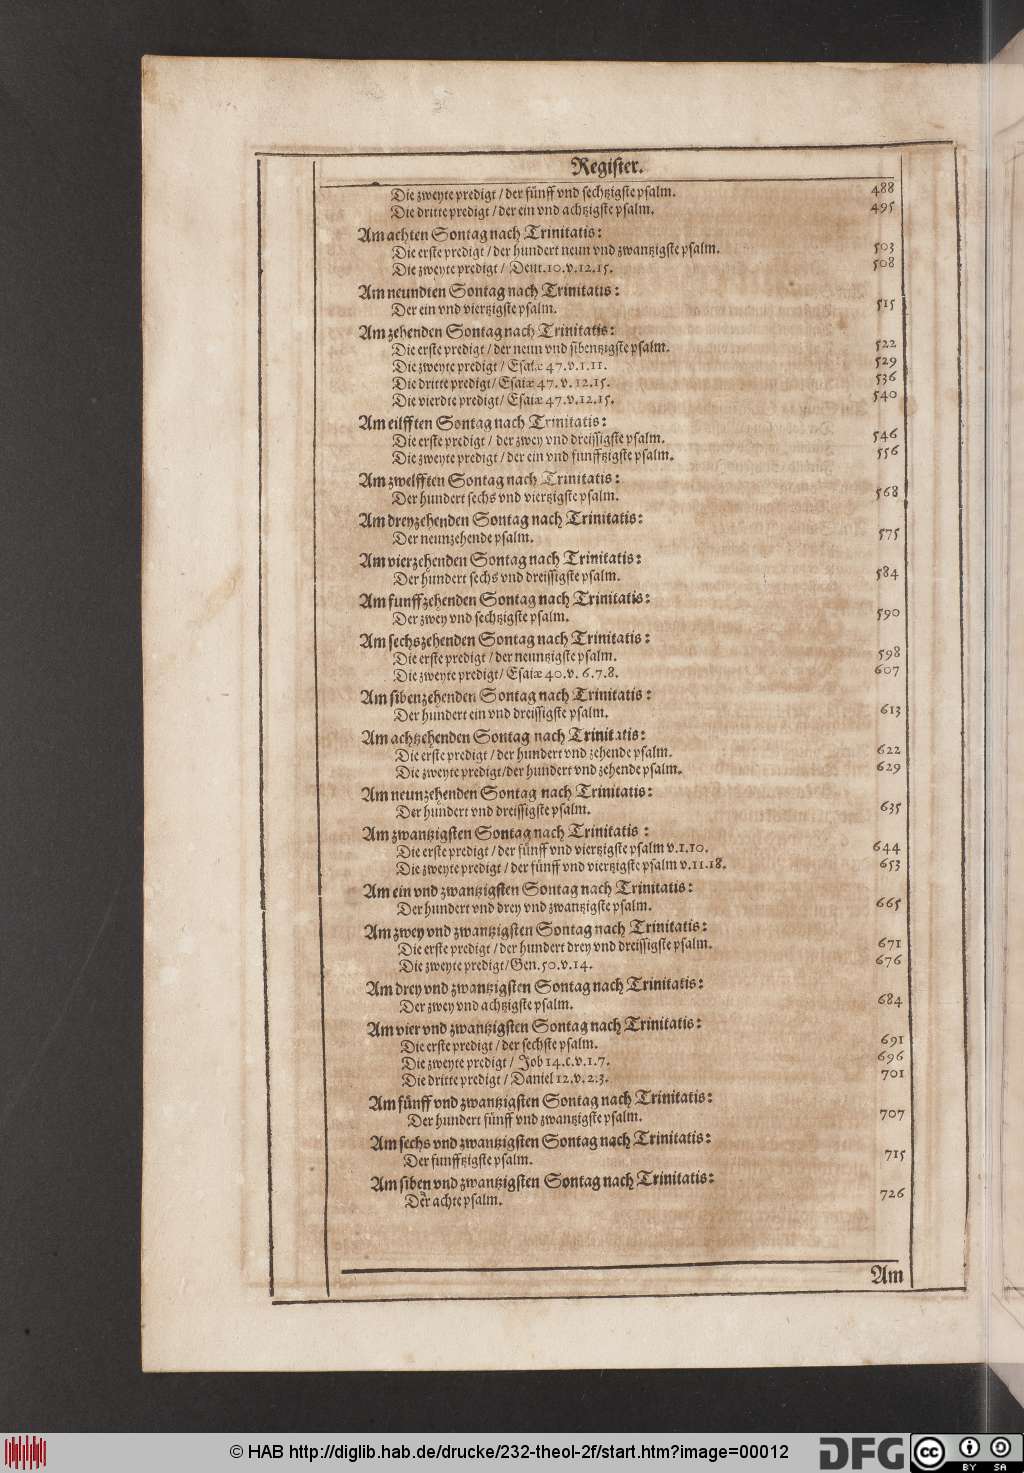 Register.
Die zweyte predigt / der fünff vnd sechtzigste psalm. 488
Die dritte predigt / der ein vnd achtzigste psalm. 495
Am achten Sontag nach Trinitatis:
Die erste predigt / der hundert neun vnd zwantzigste psalm. 503
Die zweyte predigt / Deut.10.v.12.15. 508
Am neundten Sontag nach Trinitatis:
Der ein vnd viertzigste psalm. 515
Am zehenden Sontag nach Trinitatis:
Die erste predigt / der neun vnd sibentzigste psalm. 522
Die zweyte predigt / Esaiæ 47.v.1.11. 529
Die dritte predigt / Esaiæ 47.v.12.15. 536
Die vierdte predigt / Esaiæ 47.v.12.15. 540
Am eilfften Sontag nach Trinitatis:
Die erste predigt / der zwey vnd dreissigste psalm. 546
Die zweyte predigt / der ein vnd funfftzigste psalm. 556
Am zwelfften Sontag nach Trinitatis:
Der hundert sechs vnd viertzigste psalm. 568
Am dreyzehenden Sontag nach Trinitatis:
Der neunzehende psalm. 575
Am vierzehenden Sontag nach Trinitatis:
Der hundert sechs vnd dreissigste psalm. 584
Am funffzehenden Sontag nach Trinitatis:
Der zwey vnd sechtzigste psalm. 590
Am sechszehenden Sontag nach Trinitatis:
Die erste predigt / der neuntzigste psalm. 598
Die zweyte predigt / Esaiæ 40.v. 6.7.8. 607
Am sibenzehenden Sontag nach Trinitatis:
Der hundert ein vnd dreissigste psalm. 613
Am achtzehenden Sontag nach Trinitatis:
Die erste predigt / der hundert vnd zehende psalm. 622
Die zweyte predigt/der hundert vnd zehende psalm. 629
Am neunzehenden Sontag nach Trinitatis:
Der hundert vnd dreissigste psalm. 635
Am zwantzigsten Sontag nach Trinitatis :
Die erste predigt / der fünff vnd viertzigste psalm v.1.10. 644
Die zweyte predigt / der fünff vnd viertzigste psalm v.11.18. 653
Am ein vnd zwantzigsten Sontag nach Trinitatis:
Der hundert vnd drey vnd zwantzigste psalm. 665
Am zwey vnd zwantzigsten Sontag nach Trinitatis:
Die erste predigt / der hundert drey vnd dreissigste psalm. 671
Die zweyte predigt/Gen.50.v.14. 676
Am drey vnd zwantzigsten Sontag nach Trinitatis:
Der zwey vnd achtzigste psalm. 684
Am vier vnd zwantzigsten Sontag nach Trinitatis:
Die erste predigt / der sechste psalm. 691
Die zweyte predigt / Job 14.c.v.1.7. 696
Die dritte predigt / Daniel 12.v.2.3. 701
Am fünff vnd zwantzigsten Sontag nach Trinitatis:
Der hundert fünff vnd zwantzigste psalm. 707
Am sechs vnd zwantzigsten Sontag nach Trinitatis:
Der funfftzigste psalm. 715
Am siben vnd zwantzigsten Sontag nach Trinitatis:
Der achte psalm. 726
Am
© HAB http://diglib.hab.de/drucke/232-theol-2f/start.htm?image=00012
DFG
cc BY SA